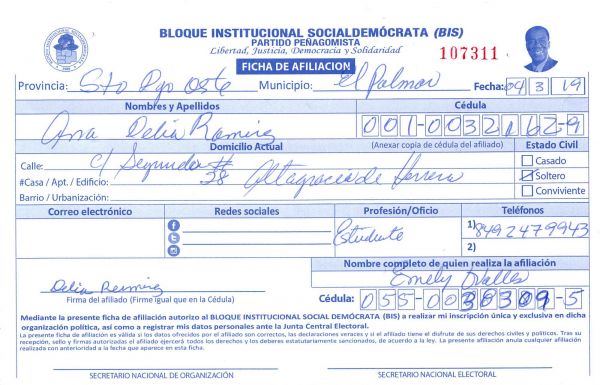 BLOQUE INSTITUCIONAL SOCIALDEMÓCRATA (BIS)
PARTIDO PEÑAGOMISTA
Libertad, Justicia, Democracia y Solidaridad
107311
FICHA DE AFILIACION
Provincia: Sto Dgo Oste Municipio: El Palmar Fecha: 04 3 19
Nombres y Apellidos Cédula
Ana Delia Ramirez 001-0032162-9
Domicilio Actual (Anexar copia de cédula del afiliado) Estado Civil
Calle: C/ Segunda # Casado
#Casa / Apt. / Edificio: 38 Altagracia de Herrera Soltero
Barrio / Urbanización: Conviviente
Correo electrónico Redes sociales Profesión/Oficio Teléfonos
Estudiante 1) 8492479943
2)
Nombre completo de quien realiza la afiliación
Delia Ramirez Emely Valles
Firma del afiliado (Firme igual que en la Cédula) Cédula: 055-0038309-5
Mediante la presente ficha de afiliación autorizo al BLOQUE INSTITUCIONAL SOCIAL DEMÓCRATA (BIS) a realizar mi inscripción única y exclusiva en dicha
organización política, así como a registrar mis datos personales ante la Junta Central Electoral.
La presente ficha de afiliación es válida si los datos ofrecidos por el afiliado son correctos, las declaraciones veraces y si el afiliado tiene el disfrute de sus derechos civiles y políticos. Tras su
recepción, sello y firmas autorizadas el afiliado ejercerá todos los derechos y los deberes estatutariamente sancionados, de acuerdo a la ley. La presente afiliación anula cualquier afiliación
realizada con anterioridad a la fecha que aparece en esta ficha.
SECRETARIO NACIONAL DE ORGANIZACIÓN SECRETARIO NACIONAL ELECTORAL